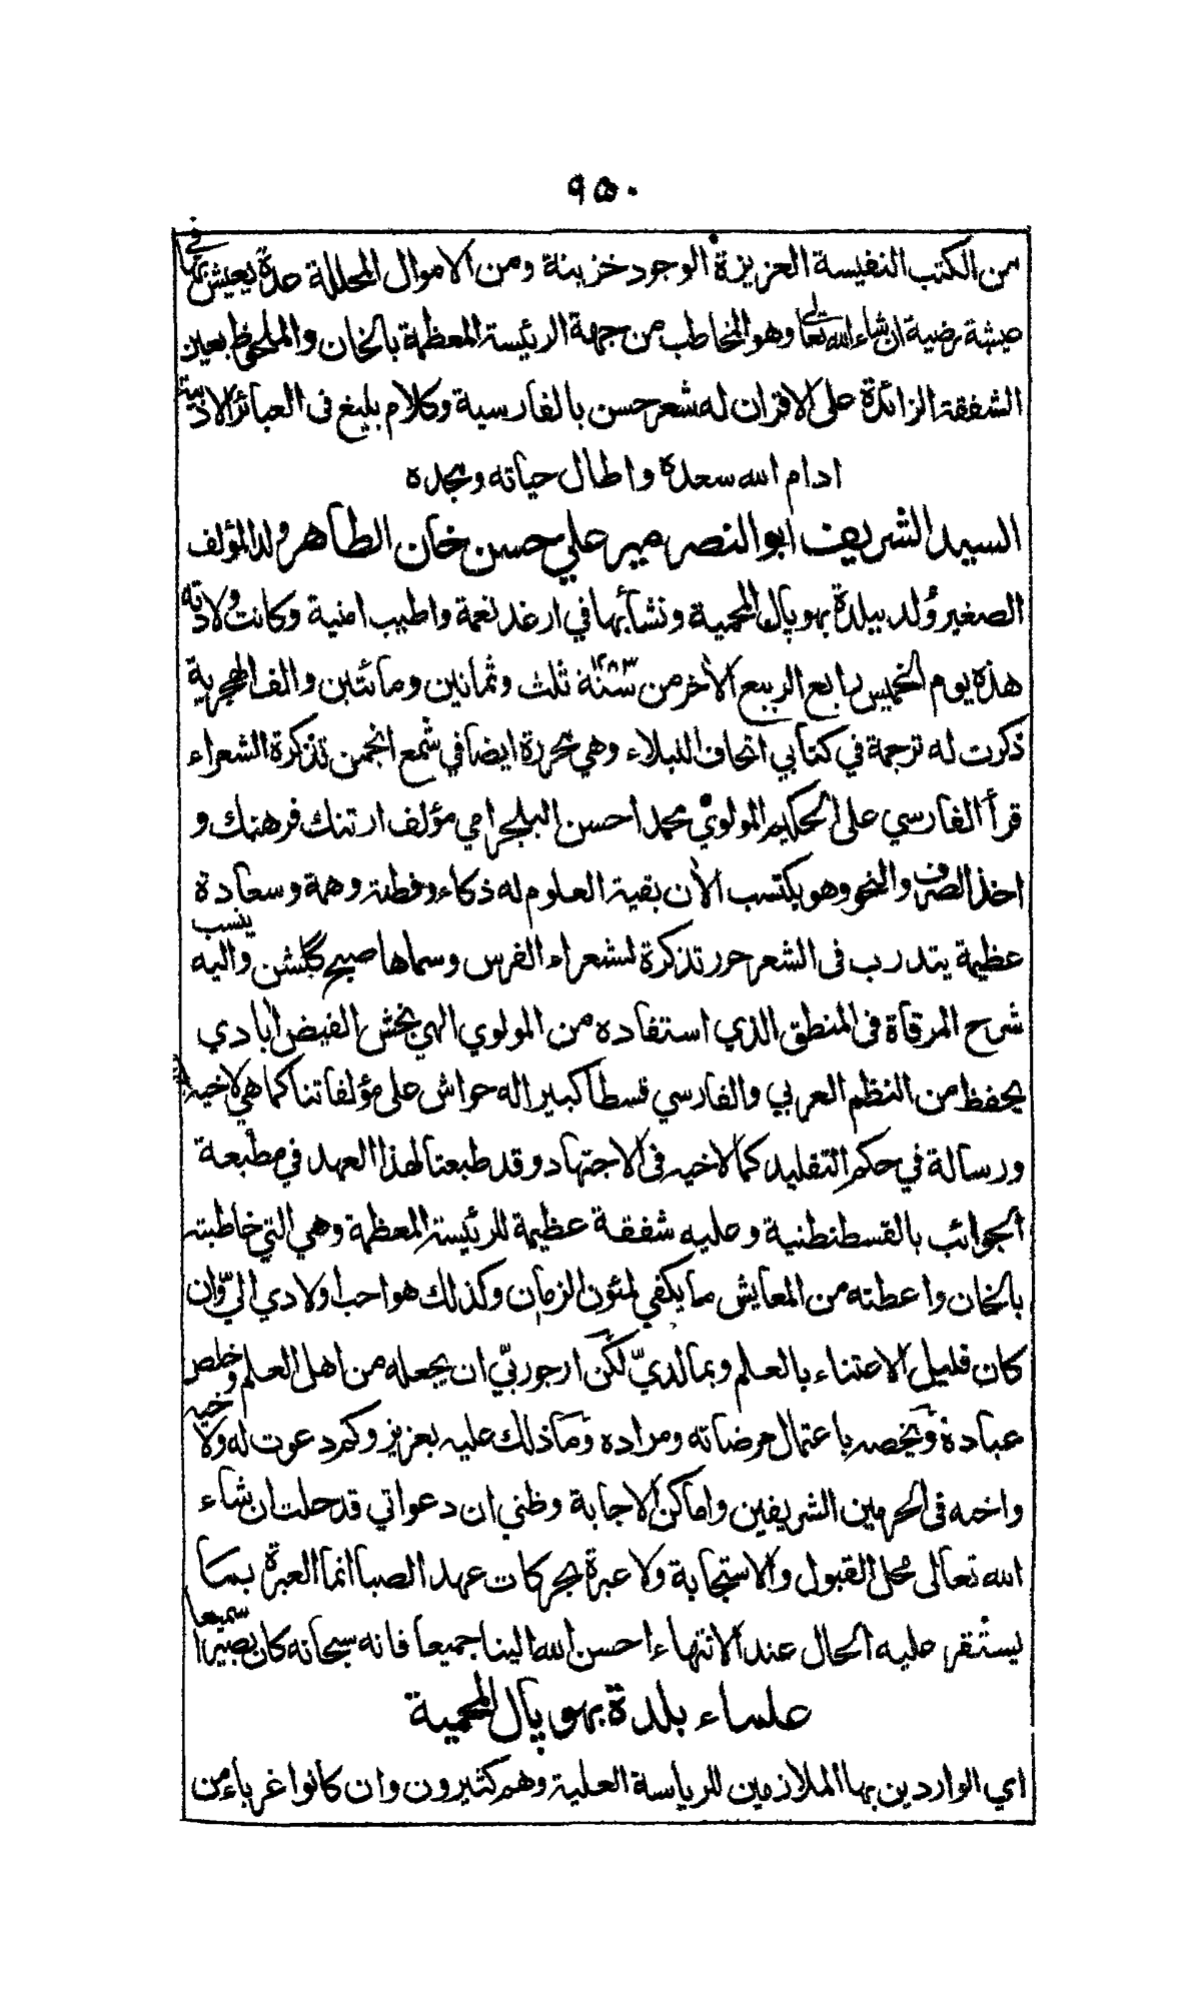 ٩٥٠
من الكتب النفيسة العزيزة الوجود خزينة ومن الاموال المحللة عدة يعيش بها في
عيشة رضية ان شاء الله تعالى وهو المخاطب من جهة الرئيسة المعظمة بالخان والملحوظ بعين
الشفقة الزائدة على الاقران له شعر حسن بالفارسية وكلام بليغ فى العبائر الادبية
ادام الله سعده واطال حياته ومجده
السيد الشريف ابو النصر مير علي حسن خان الطاهر ولد المؤلف
الصغير وُلد ببلدة بهوپال المحمية ونشأ بها في ارغد نعمة واطيب امنية وكانت ولادته
هذه يوم الخميس رابع الربيع الآخر من سنة ١٢٨٣ ثلث وثمانين ومائتين والف الهجرية
ذكرت له ترجمة في كتابي اتحاف النبلاء وهي محررة ايضا في شمع انجمن تذكرة الشعراء
قرأ الفارسي على الحكيم المولوي محمد احسن البلجرامي مؤلف ارتنك فرهنك و
اخذ الصرف والنحو وهو يكتسب الآن بقية العلوم له ذكاء وفطنة وهمة وسعادة
عظيمة يتدرب فى الشعر حرر تذكرة لشعراء الفرس وسماها صبح گلشن واليه ينسب
شرح المرقاة فى المنطق الذي استفاده من المولوي الهي بخش الفيض ابادي
يحفظ من النظم العربي والفارسي قسطا كبيرا له حواش على مؤلفاتنا كما هي لاخيه
ورسالة في حكم التقليد كما لاخيه فى الاجتهاد وقد طبعتا لهذا العهد في مطبعة
الجوائب بالقسطنطنية وعليه شفقة عظيمة للرئيسة المعظمة وهي التي خاطبته
بالخان واعطته من المعايش ما يكفي لمئون الزمان وكذلك هو احب اولادي اليّ وان
كان قليل الاعتناء بالعلم وبما لديّ لكن ارجو ربّي ان يجعله من اهل العلم وخلص
عباده ويخصه باعتمال مرضاته ومراده وما ذلك عليه بعزيز وكم دعوت له ولاخيه
واخته فى الحرمين الشريفين واماكن الاجابة وظني ان دعواتي قد حلت ان شاء
الله تعالى محل القبول والاستجابة ولا عبرة بحركات عهد الصبا انما العبرة بما
يستقر عليه الحال عند الانتهاء احسن الله الينا جميعا فانه سبحانه كان سميعا بصيرا
علماء بلدة بهوپال المحمية
اي الواردين بها الملازمين للرياسة العلية وهم كثيرون وان كانوا غرباء من